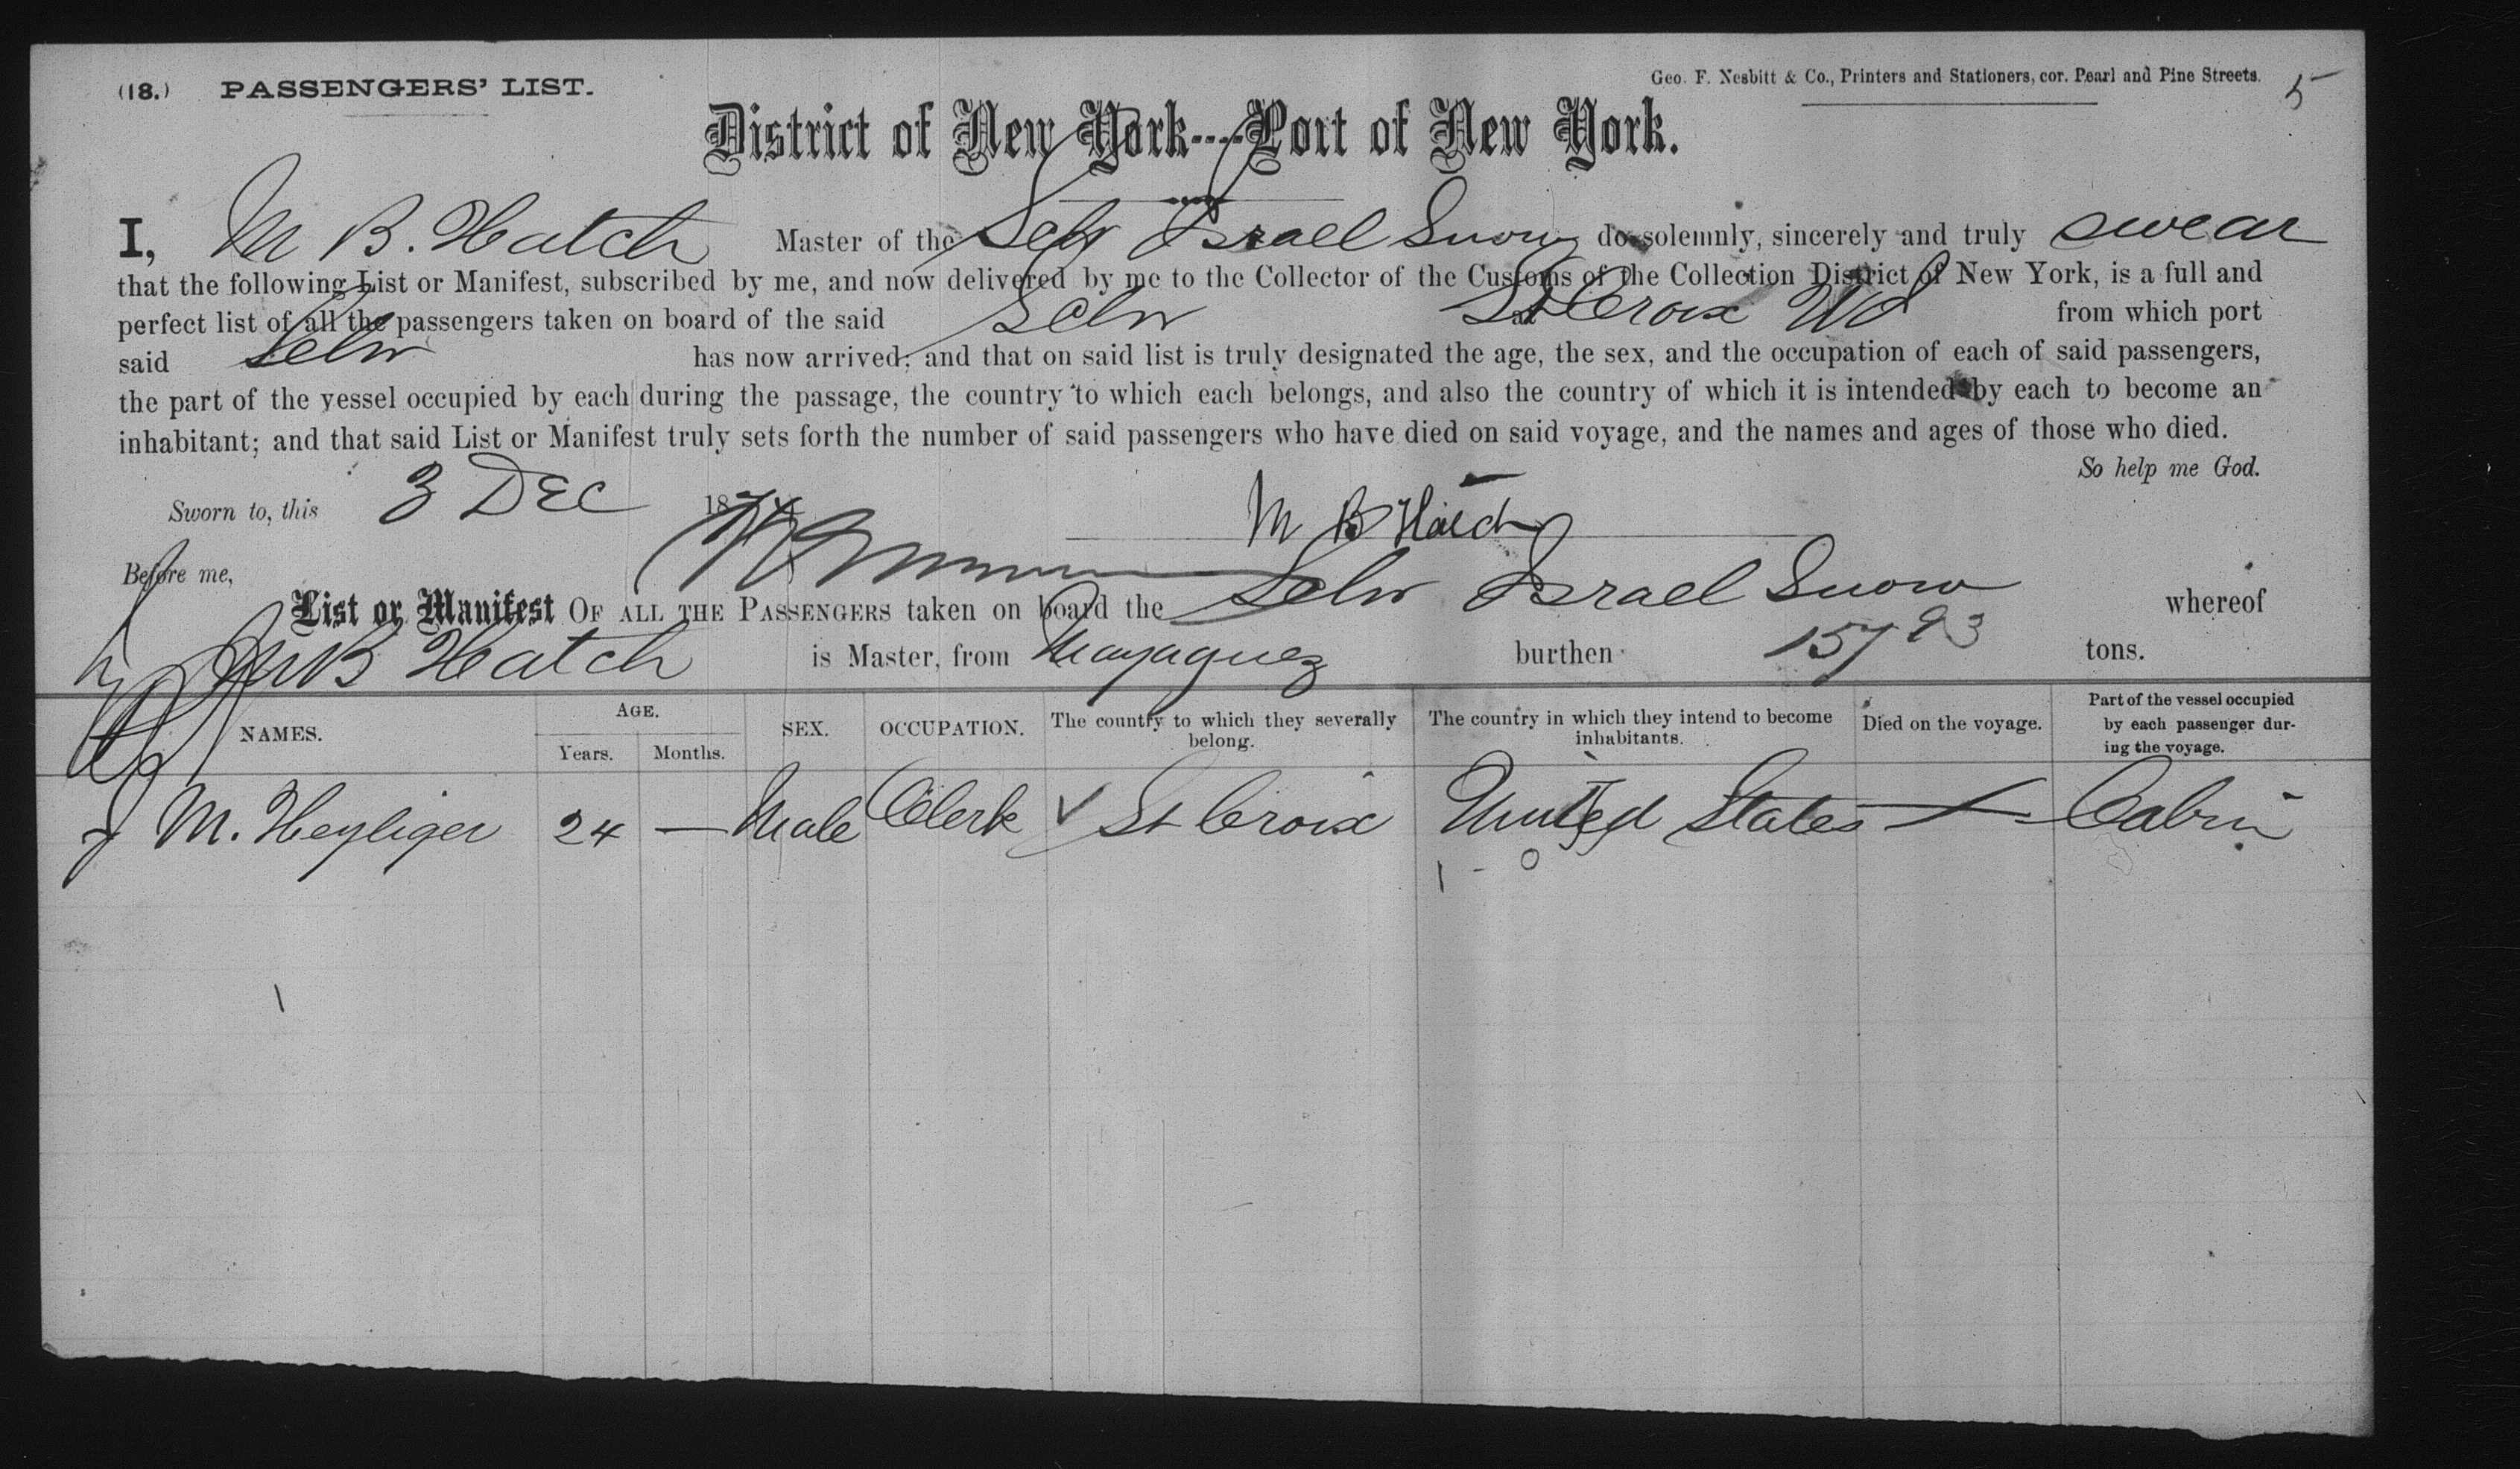 (18.) PASSENGERS' LIST.
Geo. F. Nesbitt & Co., Printers and Stationers, cor. Pearl and Pine Streets.
5
District of New York----Port of New York.
I, M B. Hatch Master of the Schr Israel Snow do solemnly, sincerely and truly swear
that the following List or Manifest, subscribed by me, and now delivered by me to the Collector of the Customs of the Collection District of New York, is a full and
perfect list of all the passengers taken on board of the said Schr at St Croix WI from which port
said Schr has now arrived; and that on said list is truly designated the age, the sex, and the occupation of each of said passengers,
the part of the vessel occupied by each during the passage, the country to which each belongs, and also the country of which it is intended by each to become an
inhabitant; and that said List or Manifest truly sets forth the number of said passengers who have died on said voyage, and the names and ages of those who died.
So help me God.
Sworn to, this 3 Dec 1874
M B Hatch
Before me,
List or Manifest OF ALL THE PASSENGERS taken on board the Schr Israel Snow whereof
M B Hatch is Master, from Mayaguez burthen 157 93 tons.
NAMES. AGE. Years. Months. SEX. OCCUPATION. The country to which they severally belong. The country in which they intend to become inhabitants. Died on the voyage. Part of the vessel occupied by each passenger during the voyage.
J M. Heyliger 24 — Male Clerk ✓ St Croix United States — Cabin
1 - 0
1